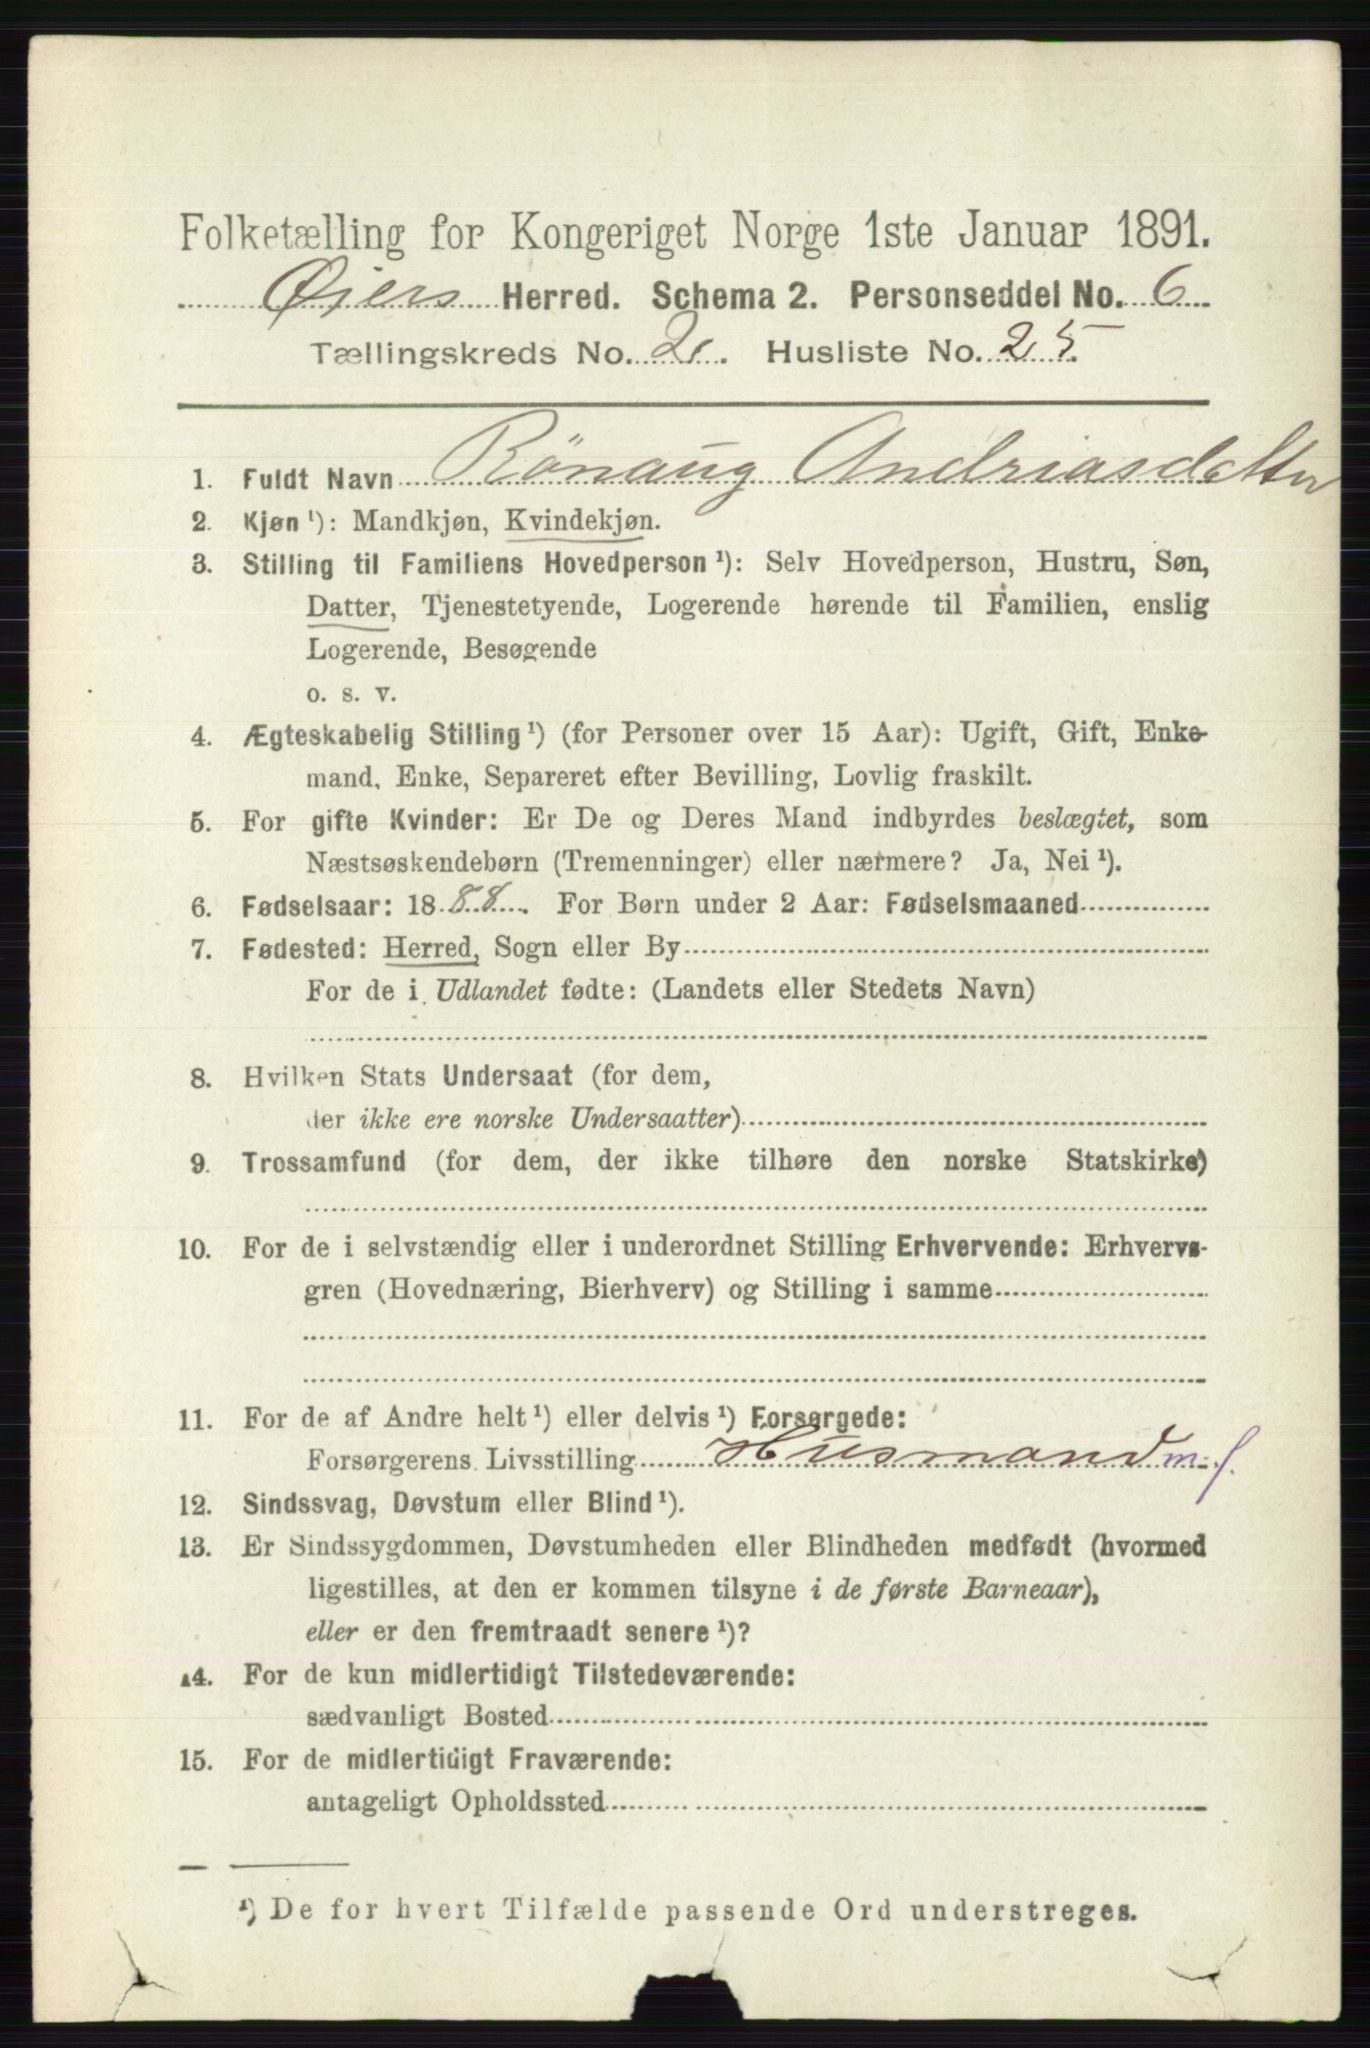 Folketælling for Kongeriget Norge 1ste Januar 1891.
Øjers Herred. Schema 2. Personseddel No. 6
Tællingskreds No. 2. Husliste No. 25.
1. Fuldt Navn Rönaug Andriasdatter
2. Kjøn ¹): Mandkjøn, Kvindekjøn.
3. Stilling til Familiens Hovedperson ¹): Selv Hovedperson, Hustru, Søn,
Datter, Tjenestetyende, Logerende hørende til Familien, enslig
Logerende, Besøgende
o. s. v.
4. Ægteskabelig Stilling ¹) (for Personer over 15 Aar): Ugift, Gift, Enke-
mand, Enke, Separeret efter Bevilling, Lovlig fraskilt.
5. For gifte Kvinder: Er De og Deres Mand indbyrdes beslægtet, som
Næstsøskendebørn (Tremenninger) eller nærmere? Ja, Nei ¹).
6. Fødselsaar: 1888. For Børn under 2 Aar: Fødselsmaaned
7. Fødested: Herred, Sogn eller By
For de i Udlandet fødte: (Landets eller Stedets Navn)
8. Hvilken Stats Undersaat (for dem,
der ikke ere norske Undersaatter)
9. Trossamfund (for dem, der ikke tilhøre den norske Statskirke)
10. For de i selvstændig eller i underordnet Stilling Erhvervende: Erhvervs-
gren (Hovednæring, Bierhverv) og Stilling i samme
11. For de af Andre helt ¹) eller delvis ¹) Forsørgede:
Forsørgerens Livsstilling Husmand m. j.
12. Sindssvag, Døvstum eller Blind ¹).
13. Er Sindssygdommen, Døvstumheden eller Blindheden medfødt (hvormed
ligestilles, at den er kommen tilsyne i de første Barneaar),
eller er den fremtraadt senere ¹)?
14. For de kun midlertidigt Tilstedeværende:
sædvanligt Bosted
15. For de midlertidigt Fraværende:
antageligt Opholdssted
¹) De for hvert Tilfælde passende Ord understreges.